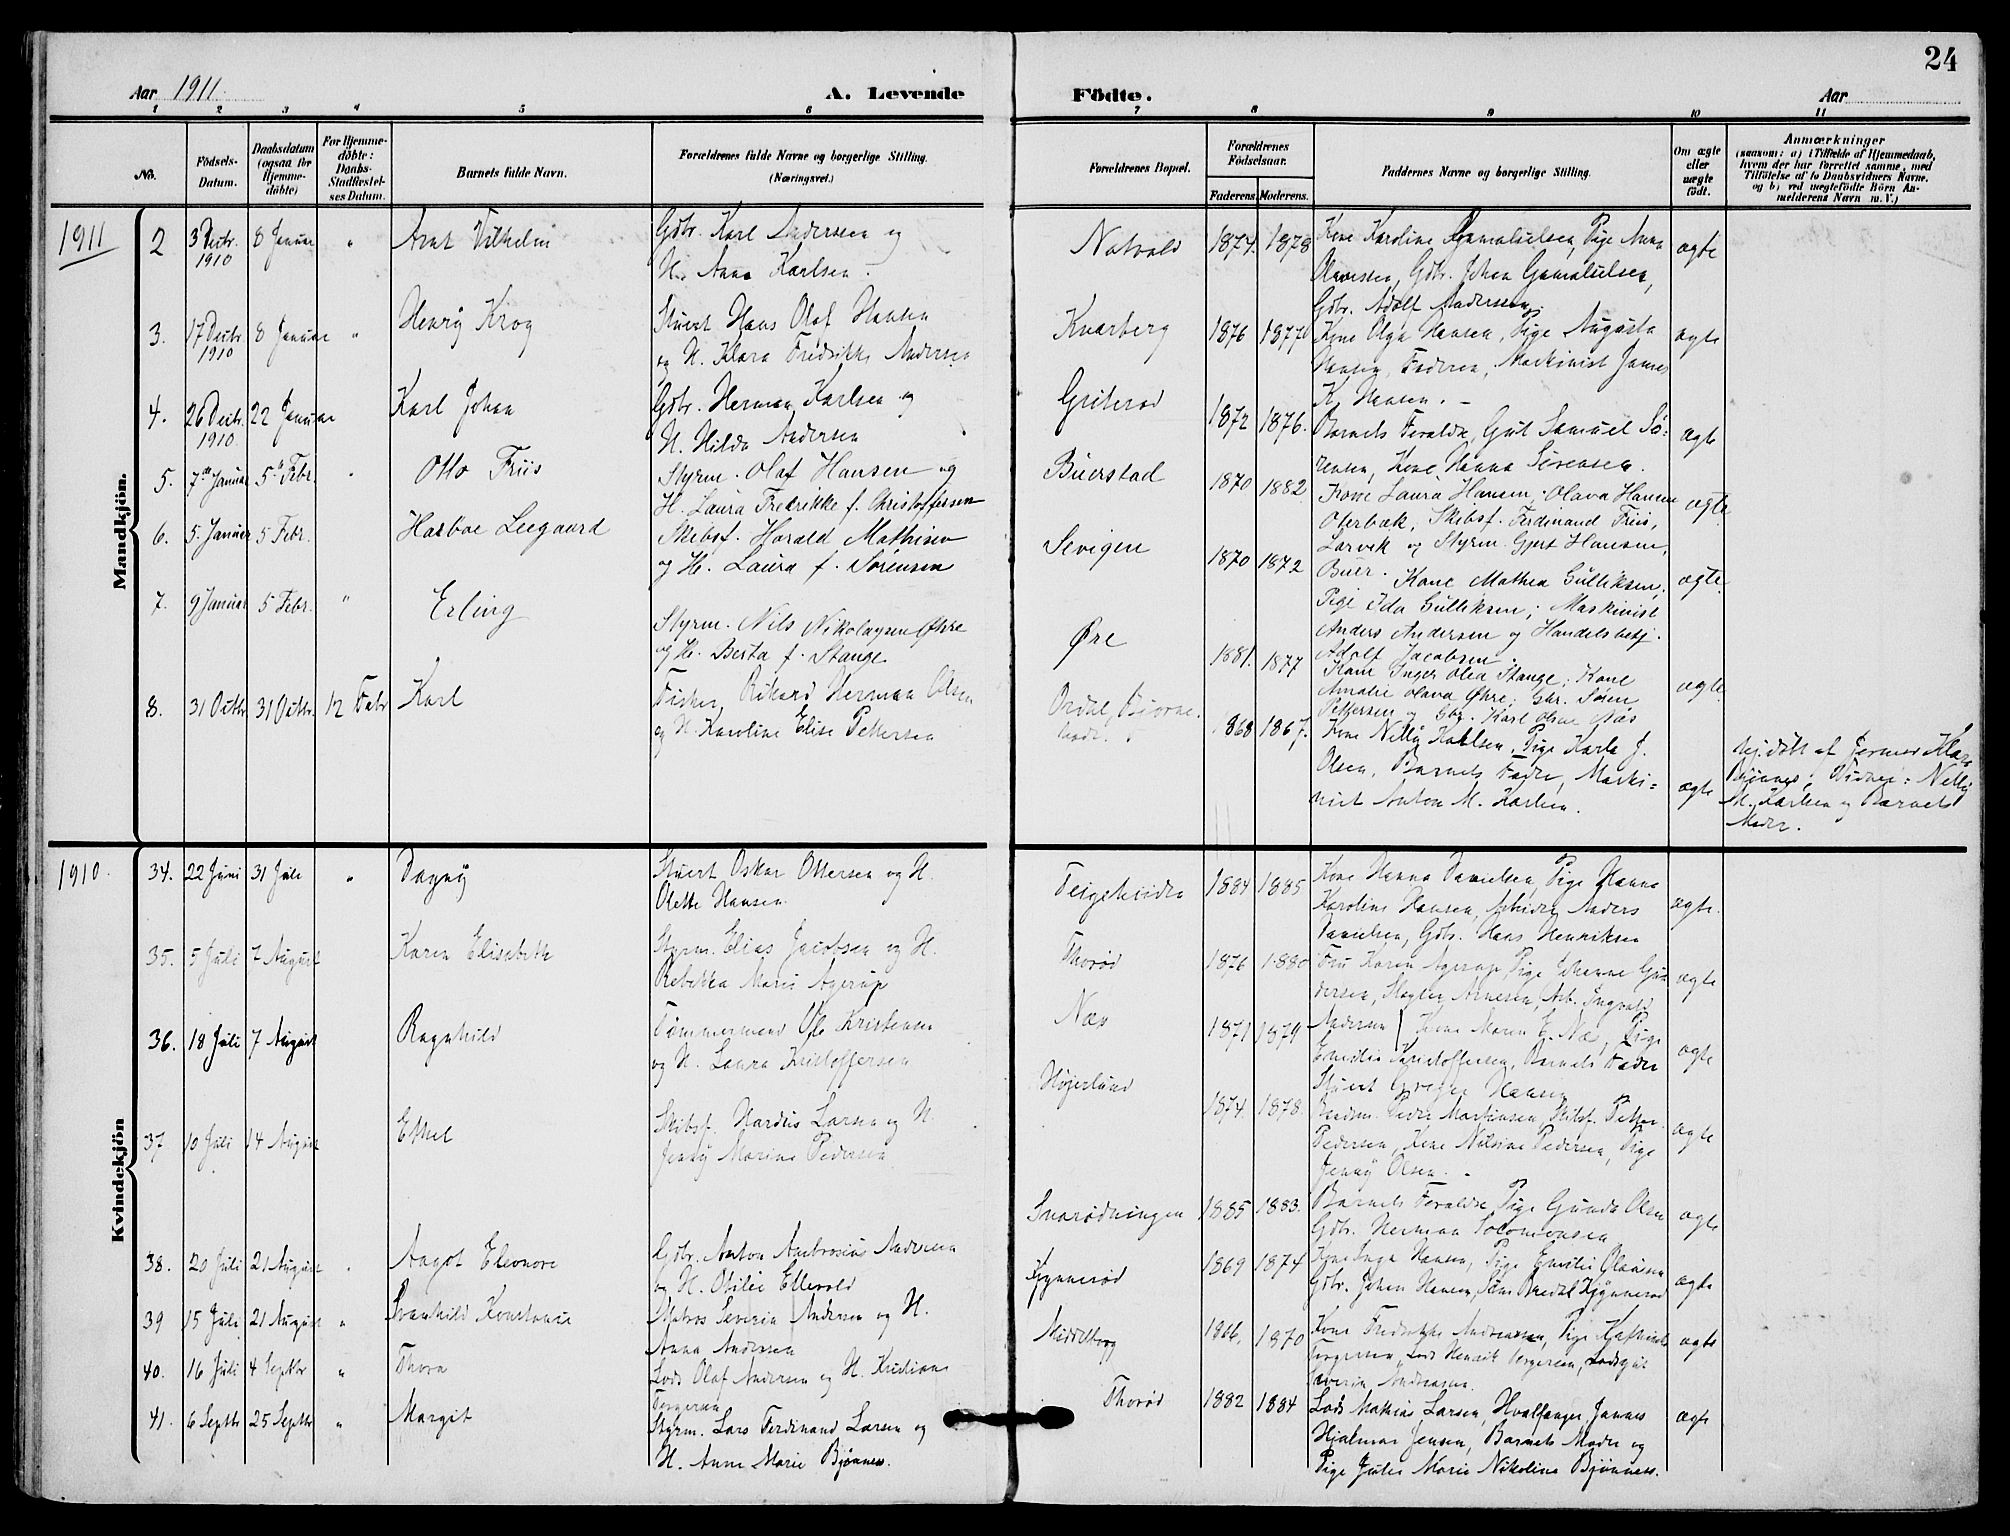 24
Aar 1911.
A. Levende
Födte.
Aar
1 2 3 4 5 6 7 8 9 10 11
No.
Födsels-Datum.
Daabsdatum (ogsaa for Hjemmedöbte)
For Hjemmedöbte: Daabs-Stadfæstelses Datum.
Barnets fulde Navn.
Forældrenes fulde Navne og borgerlige Stilling. (Næringsvei.)
Forældrenes Bopæl.
Forældrenes Födselsaar.
Faderens. Moderens.
Faddernes Navne og borgerlige Stilling.
Om ægte eller uægte födt.
Anmærkninger
(saasom: a) i Tilfælde af Hjemmedaab, hvem der har forrettet samme, med Tilföielse af to Daabsvidners Navne, og b) ved uægtefödte Börn Anmelderens Navn m. V.)
Mandkjön.
1911
2 3 Decbr. 1910 8 Januar " Arnt Vilhelm
Gbr. Karl Andersen og
H. Anna Karlsen.
Natvald 1874. 1878
Kone Karoline Gamalielsen, Pige Anna
Olavesen, Gbr. Johan Gamalielsen,
Gbr. Adolf Andersen
ægte
3. 17 Decbr. 1910 8 Januar " Henry Krog
Stuert Hans Olaf Hansen
og H. Klara Fredrikke Andersen
Kvarberg 1876 1877
Kone Olga Hansen, Pige Augusta
Hansen, Faderen, Maskinist James
K. Hansen. -
ægte
4. 26 Decbr. 1910 22 Januar Karl Johan
Gbr. Herman Karlsen og
H. Hilda Andersen
Griterød 1872 1876.
Barnets Forældre, Gut Samuel Sø-
rensen, Kone Hanna Sørensen.
ægte
5. 7de Januar 5te Febr. " Otto Friis
Styrm. Olaf Hansen og
H. Laura Fredrikke f. Christoffersen
Buerstad 1870 1882
Kone Laura Hansen, Olava Hansen
Oterbæk, Skibsf. Ferdinand Friis,
Larvik og Styrm. Gjert Hansen,
Buer.
ægte
6. 5 Januar 5 Febr. Hasboe Leegaard
Skibsf. Harald Mathisen
og H. Laura f. Sørensen
Sevigen 1870 1872
Kone Mathea Gulliksen,
Pige Ida Gulliksen; Maskinist
Anders Andersen og Handelsbetj.
Adolf Jacobsen.
ægte.
7. 9 Januar 5 Febr. " Erling
Styrm. Nils Nikolaysen Øhre
og H. Berta f. Stange
Øre 1881. 1877
Kone Inger Olea Stange; Kone
Amalie Olava Øhre; Gbr. Søren
Pettersen og Gbr. Karl Olsen Næs
ægte
8. 31 Octbr. 31 Octbr. 12 Febr Karl
Fisker Rikard Herman Olsen
og H. Karoline Elise Pettersen
1868 1867.
Kone Nelly Karlsen, Pige Karla J.
Olsen, Barnets Fader, Maski-
nist Anton M. Karlsen.
ægte
Hj. døbt af Jormor Klara
Bjønnes, Vidner: Nelly
M. Karlsen og Barnets
Moder.
Kvindekjön
1910.
34. 22 Juni 31 Juli " Dagny
Stuert Oskar Ottersen og H.
Olette Hansen
1884 1885
Kone Hanna Danielsen, Pige Hanna
Karoline Hansen, Arbeider Anders
Danielsen, Gbr. Hans Henriksen
ægte.
35. 5 Juli 7 August Karen Elisabeth
Styrm. Elias Jacobsen og H.
Rebekka Marie Agerup
Thorød 1876 1880
Fru Karen Agerup, Pige Johanne Gun-
dersen, Slagter Arnesen, Arb. Ingvald
Andersen
ægte
36. 18 Juli 7 August Ragnhild
Tømmermand Ole Kristensen
og H. Laura Kristoffersen
Næs 1871 1879
Kone Maren E. Næs, Pige
Emilie Kristoffersen, Barnets Fader
Stuert Hansen
ægte
37 10 Juli 14 August Ethel
Skibsf. Hardus Larsen og H.
Jenny Marine Pedersen
Højerlund 1874. 1878.
Peder Martinsen, Skibsf. Petter
Pedersen, Kone Nilsine Pedersen, Pige
Jenny Olsen. -
ægte
38. 20 Juli 21 August " Aagot Eleonore
Gbr. Anton Ambrosius Andersen
og H. Otilie Ellevold
Snarødningen 1885 1883.
Barnets Forældre, Pige Gunda Olsen
Gbr. Herman Solomonsen
ægte
39 15 Juli 21 August " Svanhild Konstance
Matros Severin Andersen og H.
Anna Andersen
Kjynnerød 1869 1874
Kone Inga Hansen, Pige Emilie Olausen
Gbr. Johan Hansen, Kjynnerød
ægte
40. 16 Juli 4 Septbr " Thora
Lods Olaf Andersen og H. Kristiane
Torgersen
Middelborg 1866. 1870
Kone Fredrikke Andreassen, Pige Kathinka
Torgersen, Lods Henrik Torgersen, Lodsgut
Severin Andreassen.
ægte
41. 6 Septbr 25 Septbr " Margit
Styrm. Lars Ferdinand Larsen og
H. Anne Marie Bjønnes.
Thorød 1882 1884
Lods Mathias Larsen, Hvalfanger Johannes
Hjalmar Jensen, Barnets Moder og
Pige Julie Marie Nikoline Bjønness.
ægte